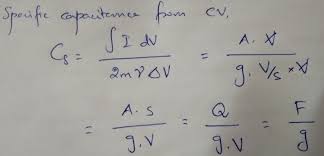 Specific capacitance from CV,
Cs = ∫ I dV / 2mν ΔV = A. V / g. V/s × V
= A. s / g. V = Q / g. V = F / g